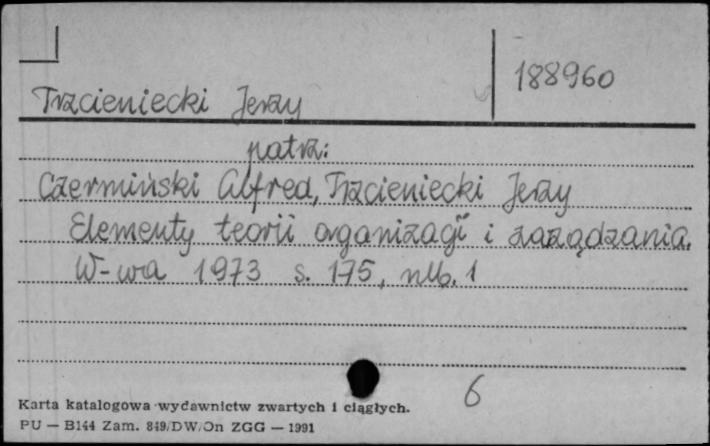 188960
Trzcieniecki Jerzy
patrz:
Czermiński Alfred, Trzcieniecki Jerzy
Elementy teorii organizacji i zarządzania.
W-wa 1973 s. 175, nlb. 1
6
Karta katalogowa wydawnictw zwartych i ciągłych.
PU — B144 Zam. 849/DW/On ZGG — 1991